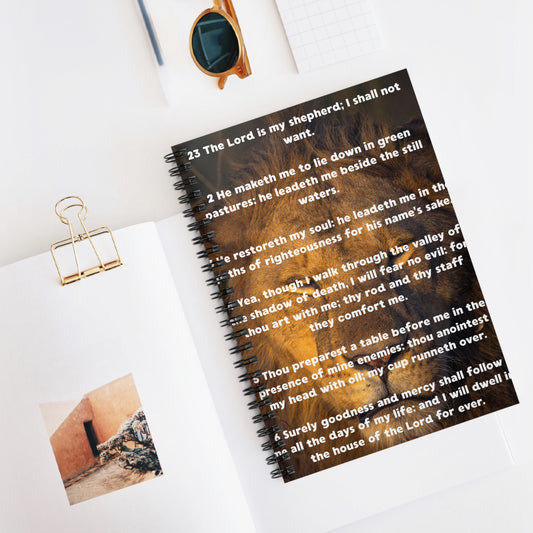 23 The Lord is my shepherd; I shall not
want.
2 He maketh me to lie down in green
pastures: he leadeth me beside the still
waters.
He restoreth my soul: he leadeth me in the
of righteousness for his name's sake.
Yea, though I walk through the valley of
the shadow of death, I will fear no evil: for
thou art with me; thy rod and thy staff
they comfort me.
5 Thou preparest a table before me in the
presence of mine enemies: thou anointest
my head with oil; my cup runneth over.
6 Surely goodness and mercy shall follow
me all the days of my life: and I will dwell in
the house of the Lord for ever.